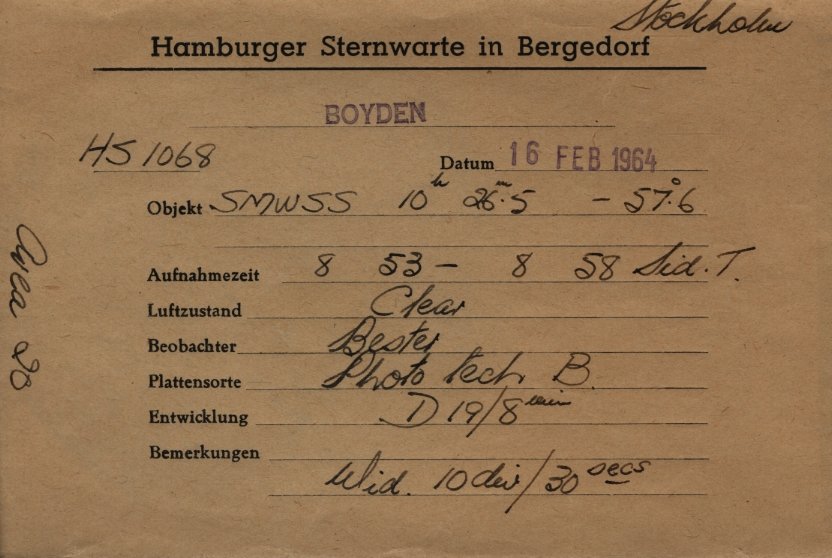 Stockholm
Hamburger Sternwarte in Bergedorf
BOYDEN
HS 1068
Datum 16 FEB 1964
Objekt SMWSS 10h 26m.5 - 57°.6
Aufnahmezeit 8 53 - 8 58 Sid. T.
Luftzustand Clear
Beobachter Bester
Plattensorte Photo tech B.
Entwicklung D 19/8 min
Bemerkungen
Wid. 10 div/30 secs
Area 20